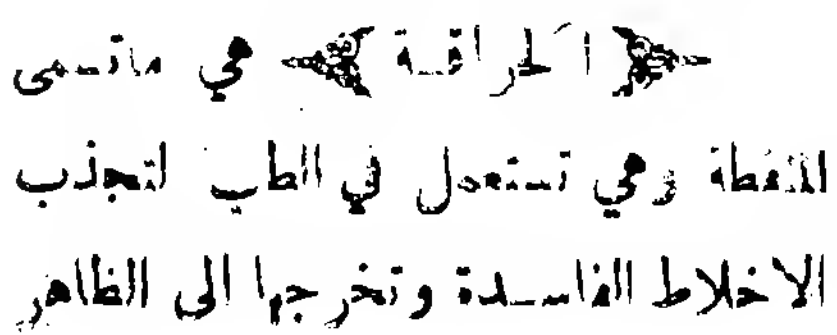 ﴿ الحراقة ﴾ هي ماتسمى
المنفطة وهي تستعمل في الطب لتجذب
الاخلاط الفاسدة وتخرجها الى الظاهر